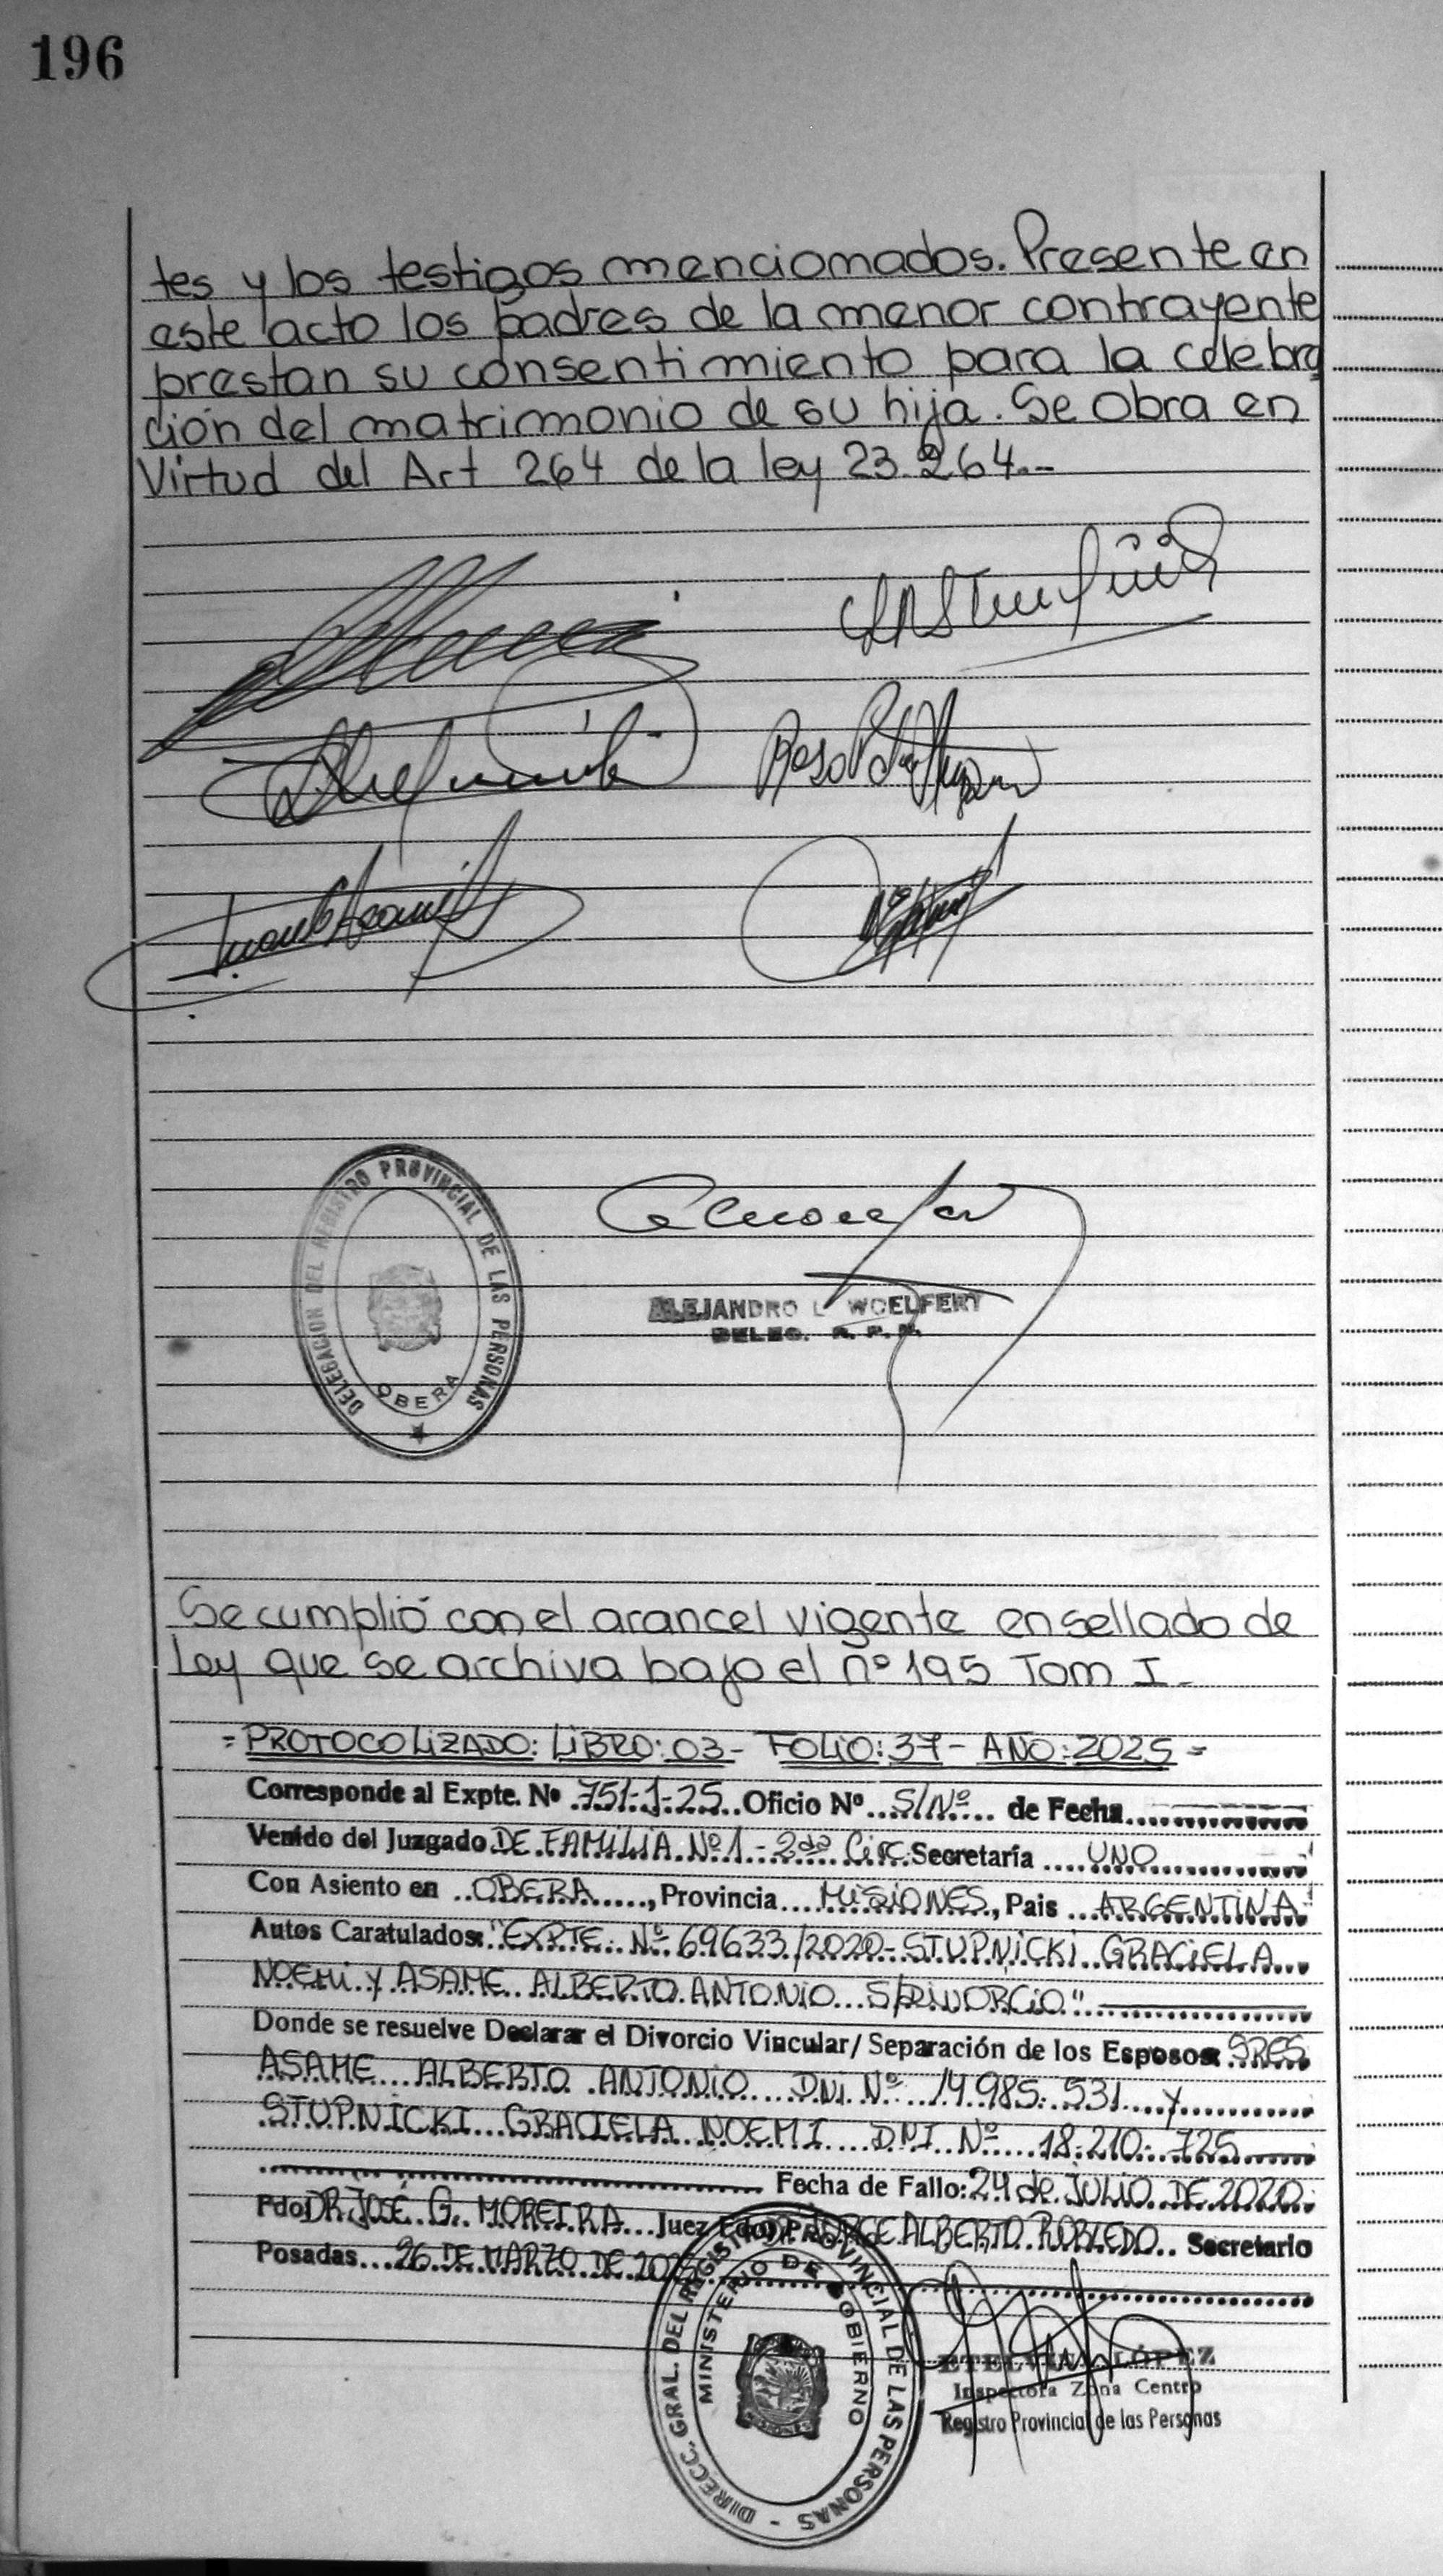 196
tes y los testigos mencionados. Presente en
este acto los padres de la menor contrayente
prestan su consentimiento para la celebra
ción del matrimonio de su hija. Se Obra en
Virtud del Art 264 de la ley 23.264.--
DELEGACION DEL REGISTRO PROVINCIAL DE LAS PERSONAS
OBERA
ALEJANDRO L. WOELFERT
DELEG. R. P. P.
Se cumplió con el arancel vigente en sellado de
Ley que se archiva bajo el nº 195 Tom I.-
= PROTOCOLIZADO: LIBRO: 03 - FOLIO: 37 - AÑO: 2025 =
Corresponde al Expte. Nº 751-J-25 Oficio Nº S/Nº de Fecha
Venido del Juzgado DE FAMILIA Nº 1 - 2da Circ Secretaría UNO
Con Asiento en OBERA, Provincia MISIONES, Pais ARGENTINA
Autos Caratulados: "EXPTE Nº 69633/2020 - STUPNICKI GRACIELA
NOEMI Y ASAME ALBERTO ANTONIO S/DIVORCIO"
Donde se resuelve Declarar el Divorcio Vincular/Separación de los Esposos: SRES
ASAME ALBERTO ANTONIO DNI Nº 14.985.531 y
STUPNICKI GRACIELA NOEMI DNI Nº 18.210.725
Fecha de Fallo: 24 de JULIO DE 2020
Fdo DR JOSÉ G. MOREIRA Juez JORGE ALBERTO ROBLEDO Secretario
Posadas 26 DE MARZO DE 2025
DIRECC. GRAL. DEL REGISTRO PROVINCIAL DE LAS PERSONAS -
MINISTERIO DE GOBIERNO
ETELVINA LÓPEZ
Inspectora Zona Centro
Registro Provincial de las Personas